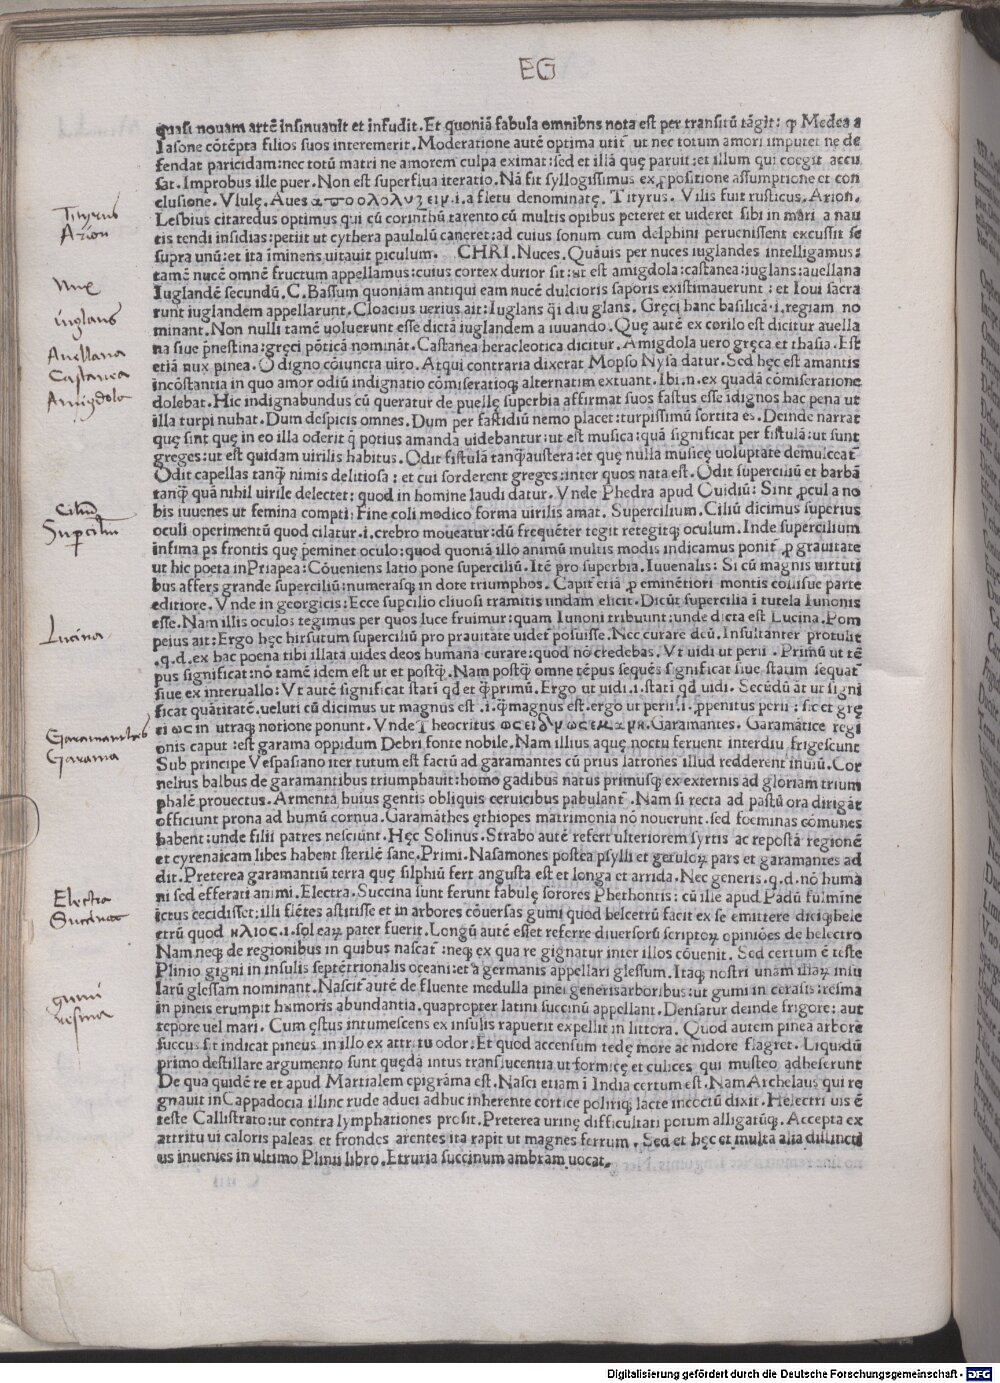 EG
quasi nouam artē insinuauit et infudit. Et quoniā fabula omnibns nota est per transitū tāgit: ꝙ Medea a
Iasone cōtēpta filios suos interemerit. Moderatione autē optima utit᷑ ut nec totum amori imputet ne de
fendat paricidam: nec totū matri ne amorem culpa eximat: sed et illā quę paruit: et illum qui coegit accu
sat. Improbus ille puer. Non est superflua iteratio. Nā fit syllogissimus ex ꝓpositione assumptione et con
clusione. Vlulę. Aues απο ολολυζειν .i. a fletu denominatę. Tityrus. Vilis fuit rusticus. Arion.
Lesbius citaredus optimus qui cū corinthū tarento cū multis opibus peteret et uideret sibi in mari a nau
tis tendi insidias: petiit ut cythera paululū caneret: ad cuius sonum cum delphini peruenissent excussit se
supra unū: et ita iminens uitauit piculum. CHRI. Nuces. Quāuis per nuces iuglandes intelligamus:
tamē nucē omnē fructum appellamus: cuius cortex durior sit: ut est amigdola: castanea: iuglans: auellana
Iuglandē secundū. C. Bassum quoniam antiqui eam nucē dulcioris saporis existimauerunt: et Ioui sacra
runt iuglandem appellarunt. Cloacius uerius ait: Iuglans q̄i diu glans. Gręci hanc basilicā .i. regiam no
minant. Non nulli tamē uoluerunt esse dictā iuglandem a iuuando. Quę autē ex corilo est dicitur auella
na siue p̄nestina: gręci pōticā nomināt. Castanea heracleotica dicitur. Amigdola uero gręca et thasia. Est
etiā nux pinea. O digno cōiuncta uiro. Atqui contraria dixerat Mopso Nysa datur. Sed hęc est amantis
incōstantia in quo amor odiū indignatio cōmiseratioq; alternatim extuant. Ibi .n. ex quadā cōmiseratione
dolebat. Hic indignabundus cū queratur de puellę superbia affirmat suos fastus esse idignos hac pena ut
illa turpi nubat. Dum despicis omnes. Dum per fastidiū nemo placet: turpissimū sortita es. Deinde narrat
quę sint quę in eo illa oderit q̄ potius amanda uidebantur: ut est musica: quā significat per fistulā: ut sunt
greges: ut est quidam uirilis habitus. Odit fistulā tanq̄ austera: et quę nulla musicę uoluptate demulceat᷑
Odit capellas tanq̄ nimis delitiosa: et cui sorderent greges: inter quos nata est. Odit superciliū et barbā
tanq̄ quā nihil uirile delectet: quod in homine laudi datur. Vnde Phedra apud Ouidiū: Sint ꝓcul a no
bis iuuenes ut femina compti: Fine coli modico forma uirilis amat. Supercilium. Ciliū dicimus superius
oculi operimentū quod cilatur .i. crebro moueatur: dū frequēter tegit retegitq; oculum. Inde supercilium
infima ps frontis quę p̄eminet oculo: quod quoniā illo animū multis modis indicamus ponit᷑ ꝓ grauitate
ut hic poeta in Priapea: Cōueniens latio pone superciliū. Itē pro superbia. Iuuenalis: Si cū magnis uirtuti
bus affers grande superciliū: numerasq; in dote triumphos. Capit᷑ etiā ꝓ eminētiori montis collisue parte
editiore. Vnde in georgicis: Ecce supcilio cliuosi tramitis undam elicit. Dicūt supercilia i tutela Iunonis
esse. Nam illis oculos tegimus per quos luce fruimur: quam Iunoni tribuunt: unde dicta est Lucina. Pom
peius ait: Ergo hęc hirsutum superciliū pro prauitate uidet᷑ posuisse. Nec curare deū. Insultanter protulit
.q.d. ex hac poena tibi illata uides deos humana curare: quod nō credebas. Vt uidi ut perii. Primū ut tē
pus significat: nō tamē idem est ut et postq̄. Nam postq̄ omne tēpus sequēs significat siue statim sequat᷑
siue ex interuallo: Vt autē significat stati qd et q̄primū. Ergo ut uidi .i. stati qd uidi. Secūdū āt ut signi
ficat quātitatē. ueluti cū dicimus ut magnus est .i. q̄ magnus est. ergo ut perii .i. ꝓpenitus perii: sic et grę
ci ως in utraq; notione ponunt. Vnde Theocritus ως ειδον ως εμανην. Garamantes. Garamātice regi
onis caput: est garama oppidum Debri fonte nobile. Nam illius aquę noctu feruent interdiu frigescunt
Sub principe Vespasiano iter tutum est factū ad garamantes cū prius latrones illud redderent inuiū. Cor
nelius balbus de garamantibus triumphauit: homo gadibus natus primusq; ex externis ad gloriam trium
phalē prouectus. Armenta huius gentis obliquis ceruicibus pabulant᷑. Nam si recta ad pastū ora dirigāt
officiunt prona ad humū cornua. Garamāthes ęthiopes matrimonia nō nouerunt. sed foeminas cōmunes
habent: unde filii patres nesciunt. Hęc Solinus. Strabo autē refert ulteriorem syrtis ac repostā regionē
et cyrenaicam libes habent sterilē sanc. Primi. Nasamones postea psylli et getuloꝝ pars et garamantes ad
dit. Preterea garamantiū terra quę silphiū fert angusta est et longa et arrida. Nec generis .q.d. nō huma
ni sed efferati animi. Electra. Succina sunt ferunt fabulę sorores Phethontis: cū ille apud Padū fulmine
ictus cecidisset: illi flētes astitisse et in arbores cōuersas gumi quod helcetrū facit ex se emittere diciq; hele
ctrū quod ηλιος .i. sol eaꝝ pater fuerit. Longū autē esset referre diuersorū scriptoꝝ opiniōes de helectro
Nam neq; de regionibus in quibus nascat᷑: neq; ex qua re gignatur inter illos cōuenit. Sed certum ē teste
Plinio gigni in insulis septētrionalis oceani: et a germanis appellari glessum. Itaq; nostri unam illaꝝ insu
larū glessam nominant. Nascit᷑ autē de fluente medulla pinei generis arboribus: ut gumi in cerasis: resina
in pineis erumpit humoris abundantia. quapropter latini succinū appellant. Densatur deinde frigore: aut
tepore uel mari. Cum ęstus intumescens ex insulis rapuerit expellit in littora. Quod autem pinea arbore
succus sit indicat pineus in illo ex attritu odor: Et quod accensum tedę more ac nidore flagret. Liquidū
primo destillare argumento sunt quędā intus translucentia ut formicę et culices qui musteo adheserunt
De qua quidē re et apud Martialem epigrāma est. Nasci etiam i India certum est. Nam Archelaus qui re
gnauit in Cappadocia illinc rude aduei adhuc inherente cortice politiq; lacte incoctū dixit. Helectri uis ē
teste Callistrato: ut contra lymphationes prosit. Preterea urinę difficultati potum alligatūq;. Accepta ex
attritu ui caloris paleas et frondes arentes ita rapit ut magnes ferrum. Sed et hęc et multa alia distincti
us inuenies in ultimo Plinii libro. Etruria succinum ambram uocat.
Tityrus
Arion
Nux
Iuglans
Auellana
Castanea
Amigdola
Cilium
Supercilium
Lucina
Garamantes
Garama
Electra
Succina
gumi
resina
Digitalisierung gefördert durch die Deutsche Forschungsgemeinschaft - DFG